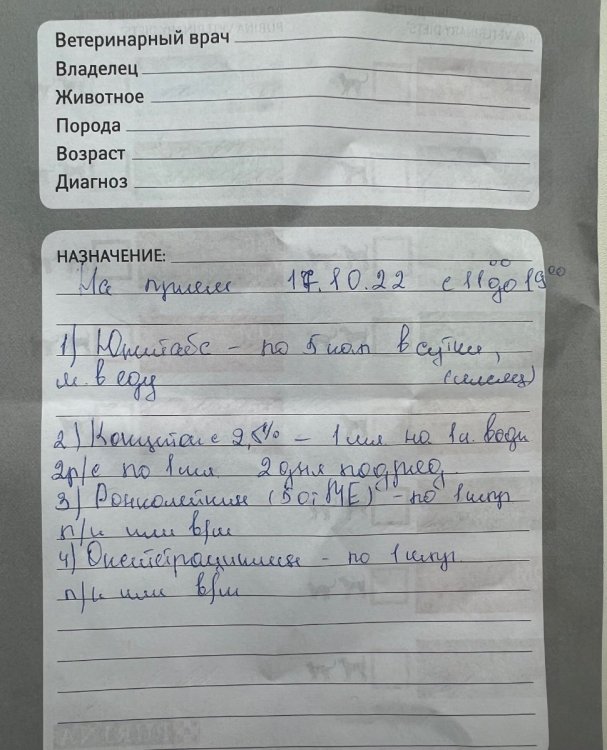 Ветеринарный врач
Владелец
Животное
Порода
Возраст
Диагноз
НАЗНАЧЕНИЕ:
На прием 17.10.22 с 11⁰⁰ до 19⁰⁰
1) Юнитабс - по 5 кап в сутки,
м. в еду (месяц)
2) 2,5% - 1 мл на 1 л. воды
2р/с по 1 мл 2 дня подряд
3) Ронколейкин (50 т МЕ) - по
п/к или в/м
4) Окситетрациклин - по
п/к или в/м